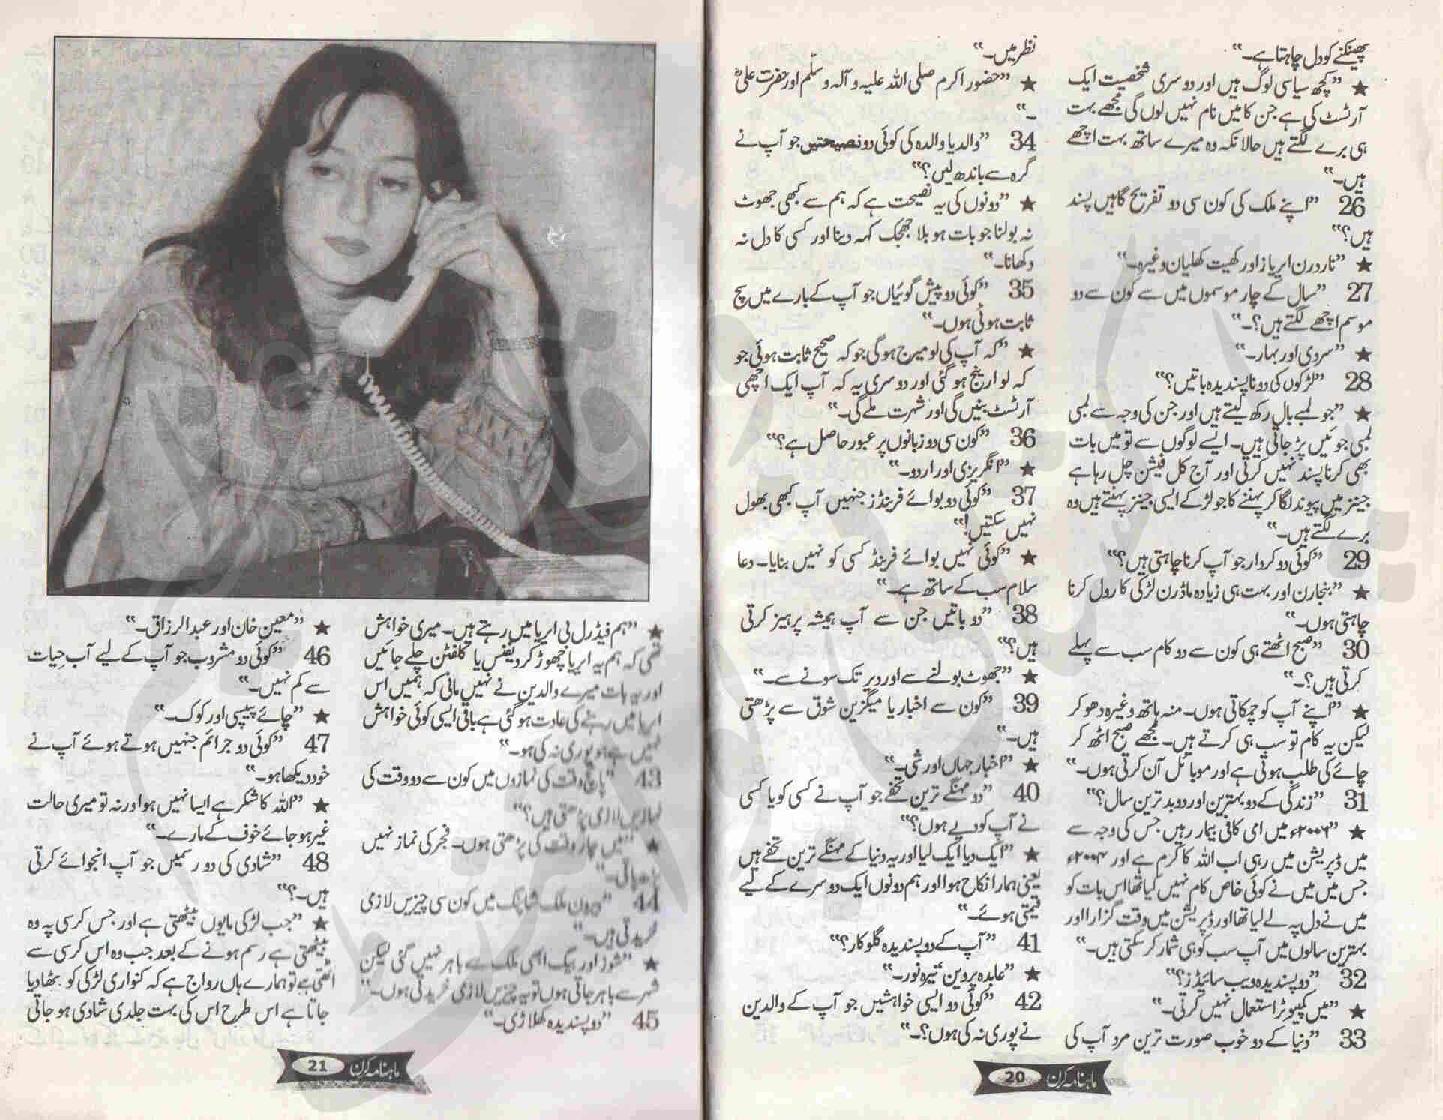 پھینکنے کو دل چاہتا ہے۔"
★ "کچھ سیاسی لوگ ہیں اور دوسری شخصیت ایک
آرٹسٹ کی ہے جن کا میں نام نہیں لوں گی مجھے بہت
ہی برے لگتے ہیں حالانکہ وہ میرے ساتھ بہت اچھے
ہیں۔"
26 "اپنے ملک کی کون سی دو تفریح گاہیں پسند
ہیں؟"
★ "ناردرن ایریاز اور کھیت کھلیان وغیرہ۔"
27 "سال کے چار موسموں میں سے کون سے دو
موسم اچھے لگتے ہیں؟۔"
★ "سردی اور بہار۔"
28 "لڑکوں کی دو ناپسندیدہ باتیں؟"
★ "جو لمبے بال رکھ لیتے ہیں اور جن کی وجہ سے لمبی
لمبی جوئیں پڑ جاتی ہیں۔ ایسے لوگوں سے تو میں بات
بھی کرنا پسند نہیں کرتی اور آج کل فیشن چل رہا ہے
جینز میں پیوند لگا کر پہننے کا جو لڑکے ایسی جینز پہنتے ہیں وہ
برے لگتے ہیں۔"
29 "کوئی دو کردار جو آپ کرنا چاہتی ہیں؟"
★ "بنجارن اور بہت ہی زیادہ ماڈرن لڑکی کا رول کرنا
چاہتی ہوں۔"
30 "صبح اٹھتے ہی کون سے دو کام سب سے پہلے
کرتی ہیں؟۔"
★ "اپنے آپ کو چمکاتی ہوں۔ منہ ہاتھ وغیرہ دھو کر
لیکن یہ کام تو سب ہی کرتے ہیں۔ مجھے صبح اٹھ کر
چائے کی طلب ہوتی ہے اور موبائل آن کرتی ہوں۔"
31 "زندگی کے دو بہترین اور دو بدترین سال؟"
★ "۲۰۰۶ء میں امی کافی بیمار رہیں جس کی وجہ سے
میں ڈپریشن میں رہی اب اللہ کا کرم ہے اور ۲۰۰۴ء
جس میں میں نے کوئی خاص کام نہیں کیا تھا اس بات کو
میں نے دل پہ لے لیا تھا اور ڈپریشن میں وقت گزارا اور
بہترین سالوں میں آپ سب کو ہی شمار کر سکتی ہیں۔"
32 "دو پسندیدہ ویب سائیڈز؟"
★ "میں کمپیوٹر استعمال نہیں کرتی۔"
33 "دنیا کے دو خوب صورت ترین مرد آپ کی
نظر میں۔"
★ "حضور اکرم صلی اللہ علیہ و آلہ وسلم اور حضرت علیؓ
۔"
34 "والد یا والدہ کی کوئی دو نصیحتیں جو آپ نے
گرہ سے باندھ لیں؟"
★ "دونوں کی یہ نصیحت ہے کہ ہم سے کبھی جھوٹ
نہ بولنا جو بات ہو بلا جھجک کہہ دینا اور کسی کا دل نہ
دکھانا۔"
35 "کوئی دو پیش گوئیاں جو آپ کے بارے میں سچ
ثابت ہوئی ہوں۔"
★ "کہ آپ کی لو میرج ہوگی جو کہ صحیح ثابت ہوئی جو
کہ لو ارینج ہو گئی اور دوسری یہ کہ آپ ایک اچھی
آرٹسٹ بنیں گی اور شہرت ملے گی۔"
36 "کون سی دو زبانوں پر عبور حاصل ہے؟"
★ "انگریزی اور اردو۔"
37 "کوئی دو بوائے فرینڈز جنہیں آپ کبھی بھول
نہیں سکتیں!"
★ "کوئی نہیں بوائے فرینڈ کسی کو نہیں بنایا۔ دعا
سلام سب کے ساتھ ہے۔"
38 "دو باتیں جن سے آپ ہمیشہ پرہیز کرتی
ہیں؟"
★ "جھوٹ بولنے سے اور دیر تک سونے سے۔"
39 "کون سے اخبار یا میگزین شوق سے پڑھتی
ہیں۔"
★ "اخبار جہاں اور شی۔"
40 "دو مہنگے ترین تحفے جو آپ نے کسی کو یا کسی
نے آپ کو دیے ہوں؟"
★ "ایک دیا ایک لیا اور یہ دنیا کے مہنگے ترین تحفے ہیں
یعنی ہمارا نکاح ہوا اور ہم دونوں ایک دوسرے کے لیے
قیمتی ہوئے۔"
41 "آپ کے دو پسندیدہ گلوکار؟"
★ "عابدہ پروین نیرہ نور۔"
42 "کوئی دو ایسی خواہشیں جو آپ کے والدین
نے پوری نہ کی ہوں؟۔"
ماہنامہ کرن 20
★ "ہم فیڈرل بی ایریا میں رہتے ہیں۔ میری خواہش
تھی کہ ہم یہ ایریا چھوڑ کر ڈیفنس یا کلفٹن چلے جائیں
اور یہ بات میرے والدین نے نہیں مانی کہ ہمیں اس
ایریا میں رہنے کی عادت ہو گئی ہے باقی ایسی کوئی خواہش
نہیں ہے جو پوری نہ کی ہو۔"
43 "پانچ وقت کی نمازوں میں کون سے دو وقت کی
نمازیں لازمی پڑھتی ہیں؟"
★ "میں چار وقت کی پڑھتی ہوں۔ فجر کی نماز نہیں
پڑھ پاتی۔"
44 "بیرون ملک شاپنگ میں کون سی چیزیں لازمی
خریدتی ہیں۔"
★ "شوز اور بیگ ابھی ملک سے باہر نہیں گئی لیکن
شہر سے باہر جاتی ہوں تو یہ چیزیں لازمی خریدتی ہوں۔"
45 "دو پسندیدہ کھلاڑی۔"
★ "معین خان اور عبدالرزاق۔"
46 "کوئی دو مشروب جو آپ کے لیے آب حیات
سے کم نہیں۔"
★ "چائے پیپسی اور کوک۔"
47 "کوئی دو جرائم جنہیں ہوتے ہوئے آپ نے
خود دیکھا ہو۔"
★ "اللہ کا شکر ہے ایسا نہیں ہوا ورنہ تو میری حالت
غیر ہو جائے خوف کے مارے۔"
48 "شادی کی دو رسمیں جو آپ انجوائے کرتی
ہیں۔؟"
★ "جب لڑکی مایوں بیٹھتی ہے اور جس کرسی پہ وہ
بیٹھتی ہے رسم ہونے کے بعد جب وہ اس کرسی سے
اٹھتی ہے تو ہمارے ہاں رواج ہے کہ کنواری لڑکی کو بٹھا دیا
جاتا ہے اس طرح اس کی بہت جلدی شادی ہو جاتی
ماہنامہ کرن 21